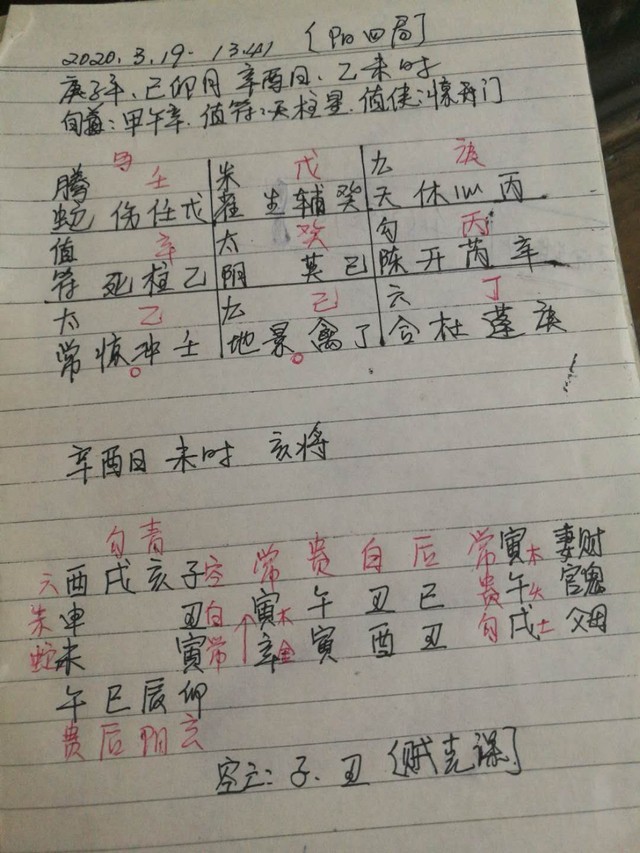 2020.3.19. 13:41 [阳四局]
庚子年、己卯月 辛酉日、乙未时
旬首:甲午辛.值符:天柱星.值使:惊门
马 壬 戊 庚
腾 朱 九
蛇 伤任戊 雀 生辅癸 天 休心丙
值 辛 太 癸 勾 丙
符 死柱乙 阴 英己 陈 开芮辛
太 乙 九 己 六 丁
常 惊冲壬 地 景禽丁 合 杜蓬庚
辛酉日 未时 亥将
勾青
六 酉戌亥子 空 常贵白后 常寅木 妻财
朱 申 丑 白 寅木 午丑巳 贵午火 官鬼
蛇 未 寅 常 辛金 寅酉丑 勾戌土 父母
午巳辰卯
贵后阴玄
空亡:子、丑 [贼克课]